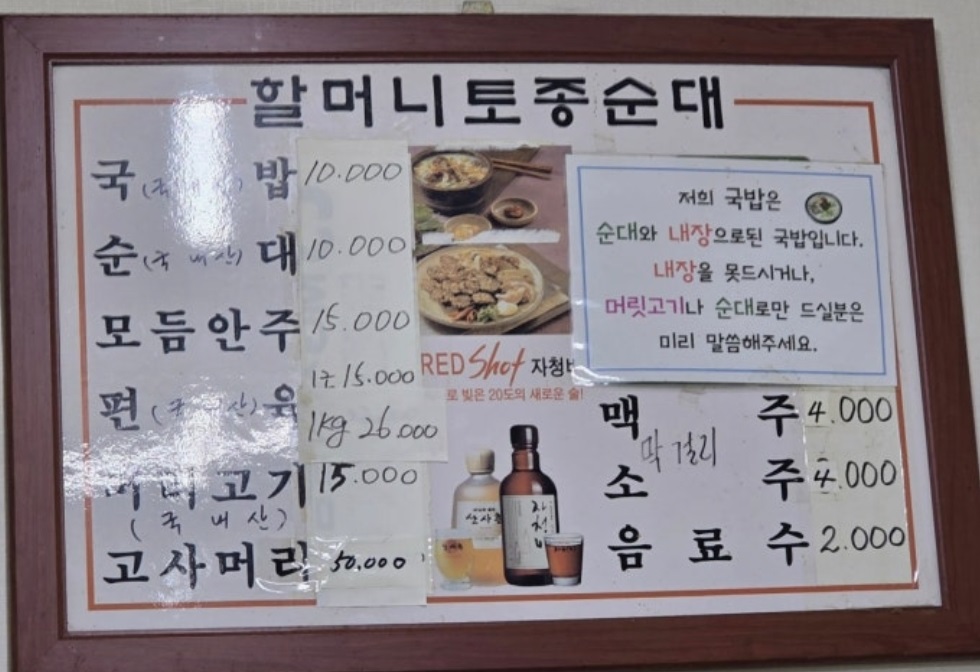 할머니토종순대
국(국내산)밥 10.000
순(국내산)대 10.000
모듬안주 15.000
편(국내산)육 15.000
1kg 26.000
머리고기 15.000
(국내산)
고사머리 50.000
저희 국밥은
순대와 내장으로된 국밥입니다.
내장을 못드시거나,
머릿고기나 순대로만 드실분은
미리 말씀해주세요.
RED Shot 자청비
로 빚은 20도의 새로운 술!
산사춘
자청비
맥주 4.000
막걸리
소주 4.000
음료수 2.000